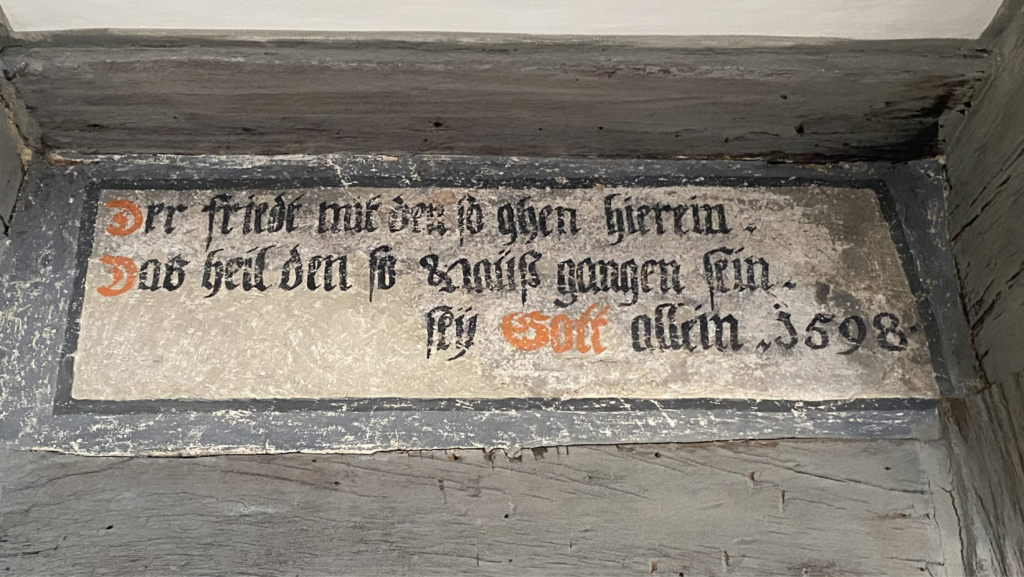 Der friedt mit den so ghen hierein .
Das heil den so Rauß gangen sein .
seÿ Gott allein . 1598